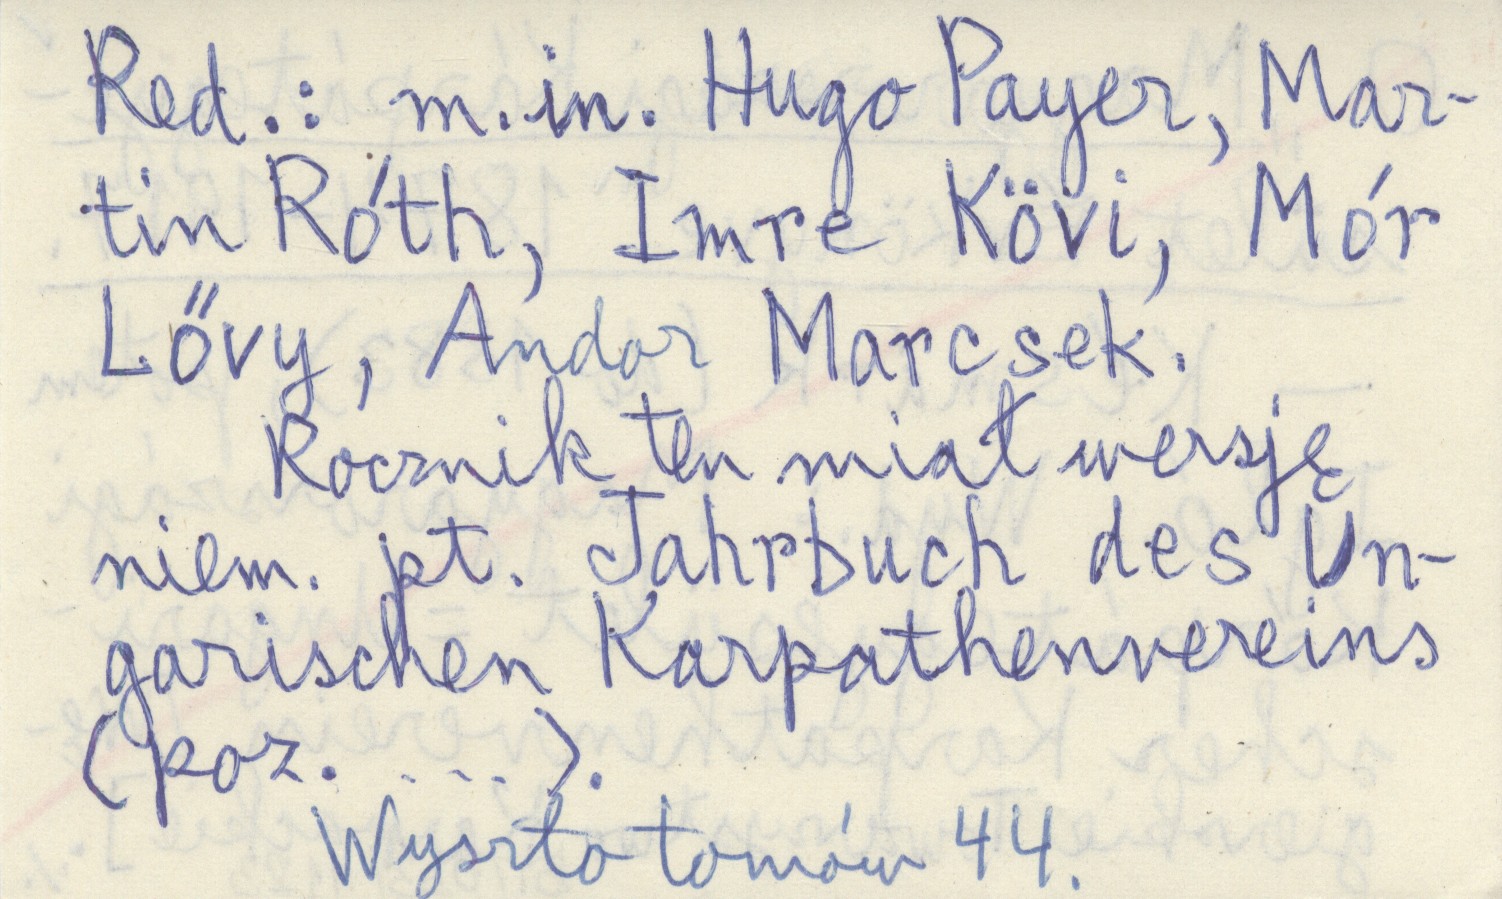 Red.: m.in. Hugo Payer, Mar-
tin Róth, Imre Kövi, Mór
Lővy, Andor Marcsek.
Rocznik ten miał wersję
niem. pt. Jahrbuch des Un-
garischen Karpathenvereins
(poz. ....).
Wyszło tomów 44.